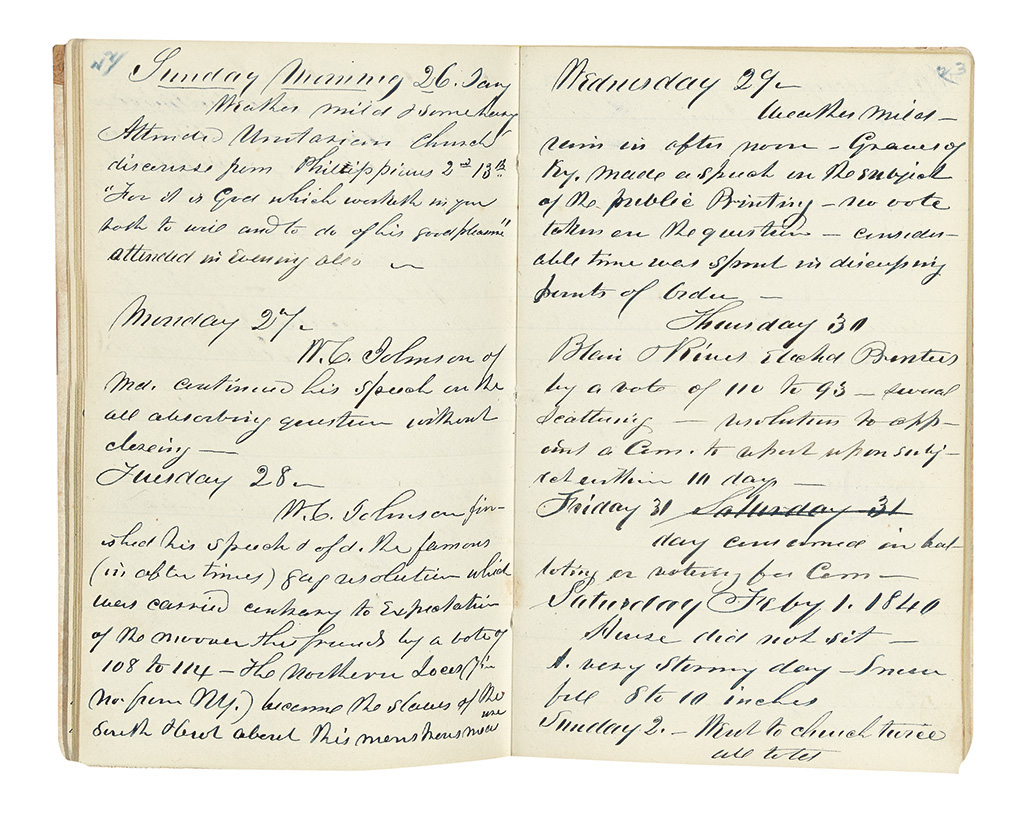 24
Sunday Morning 26. Jany
Weather mild & somewhat
Attended Unitarian Church
discourse from Phillippians 2nd 13th
"For it is God which worketh in you
both to will and to do of his good pleasure"
attended in Evening also
Monday 27.
W.C. Johnson of
Md. continued his speech on the
all absorbing question without
closeing —
Tuesday 28 —
W.C. Johnson fin-
ished his speech & offd. the famous
(in after times) gag resolution which
was carried contrary to Expectation
of the moover & his friends by a vote of
108 to 114 — The Northern Locos (7 in
no. from NY.) became the slaves of the
South & brot about this monstrous
23
Wednesday 29 —
Weather mild —
rain in after noon — Graves of
Ky. made a speech on the subject
of the public Printing — no vote
taken on the question — consider-
able time was spent in discussing
points of Order —
Thursday 30
Blair & Rives Elected Printers
by a vote of 110 to 93 — several
scattering — resolution to app-
oint a Com. to report upon subj-
ect within 10 days —
Friday 31 Saturday 31
day consumed in bal-
loting or voting for Com —
Saturday Feby 1. 1840
House did not sit —
A very stormy day — Snow
fell 8 to 10 inches
Sunday 2. — Went to church twice
all told